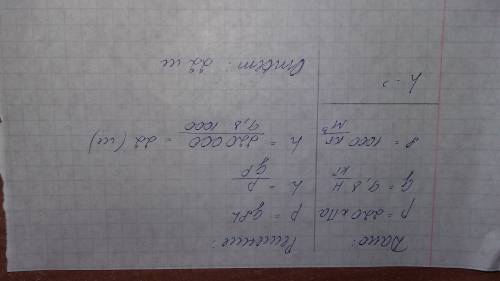 Дано:
p = 220 кПа
g = 9,8 Н/кг
ρ = 1000 кг/м³
h - ?
Решение:
p = gρh
h = p/gρ
h = 220 000/9,8 · 1000 = 22 (м)
Ответ: 22 м